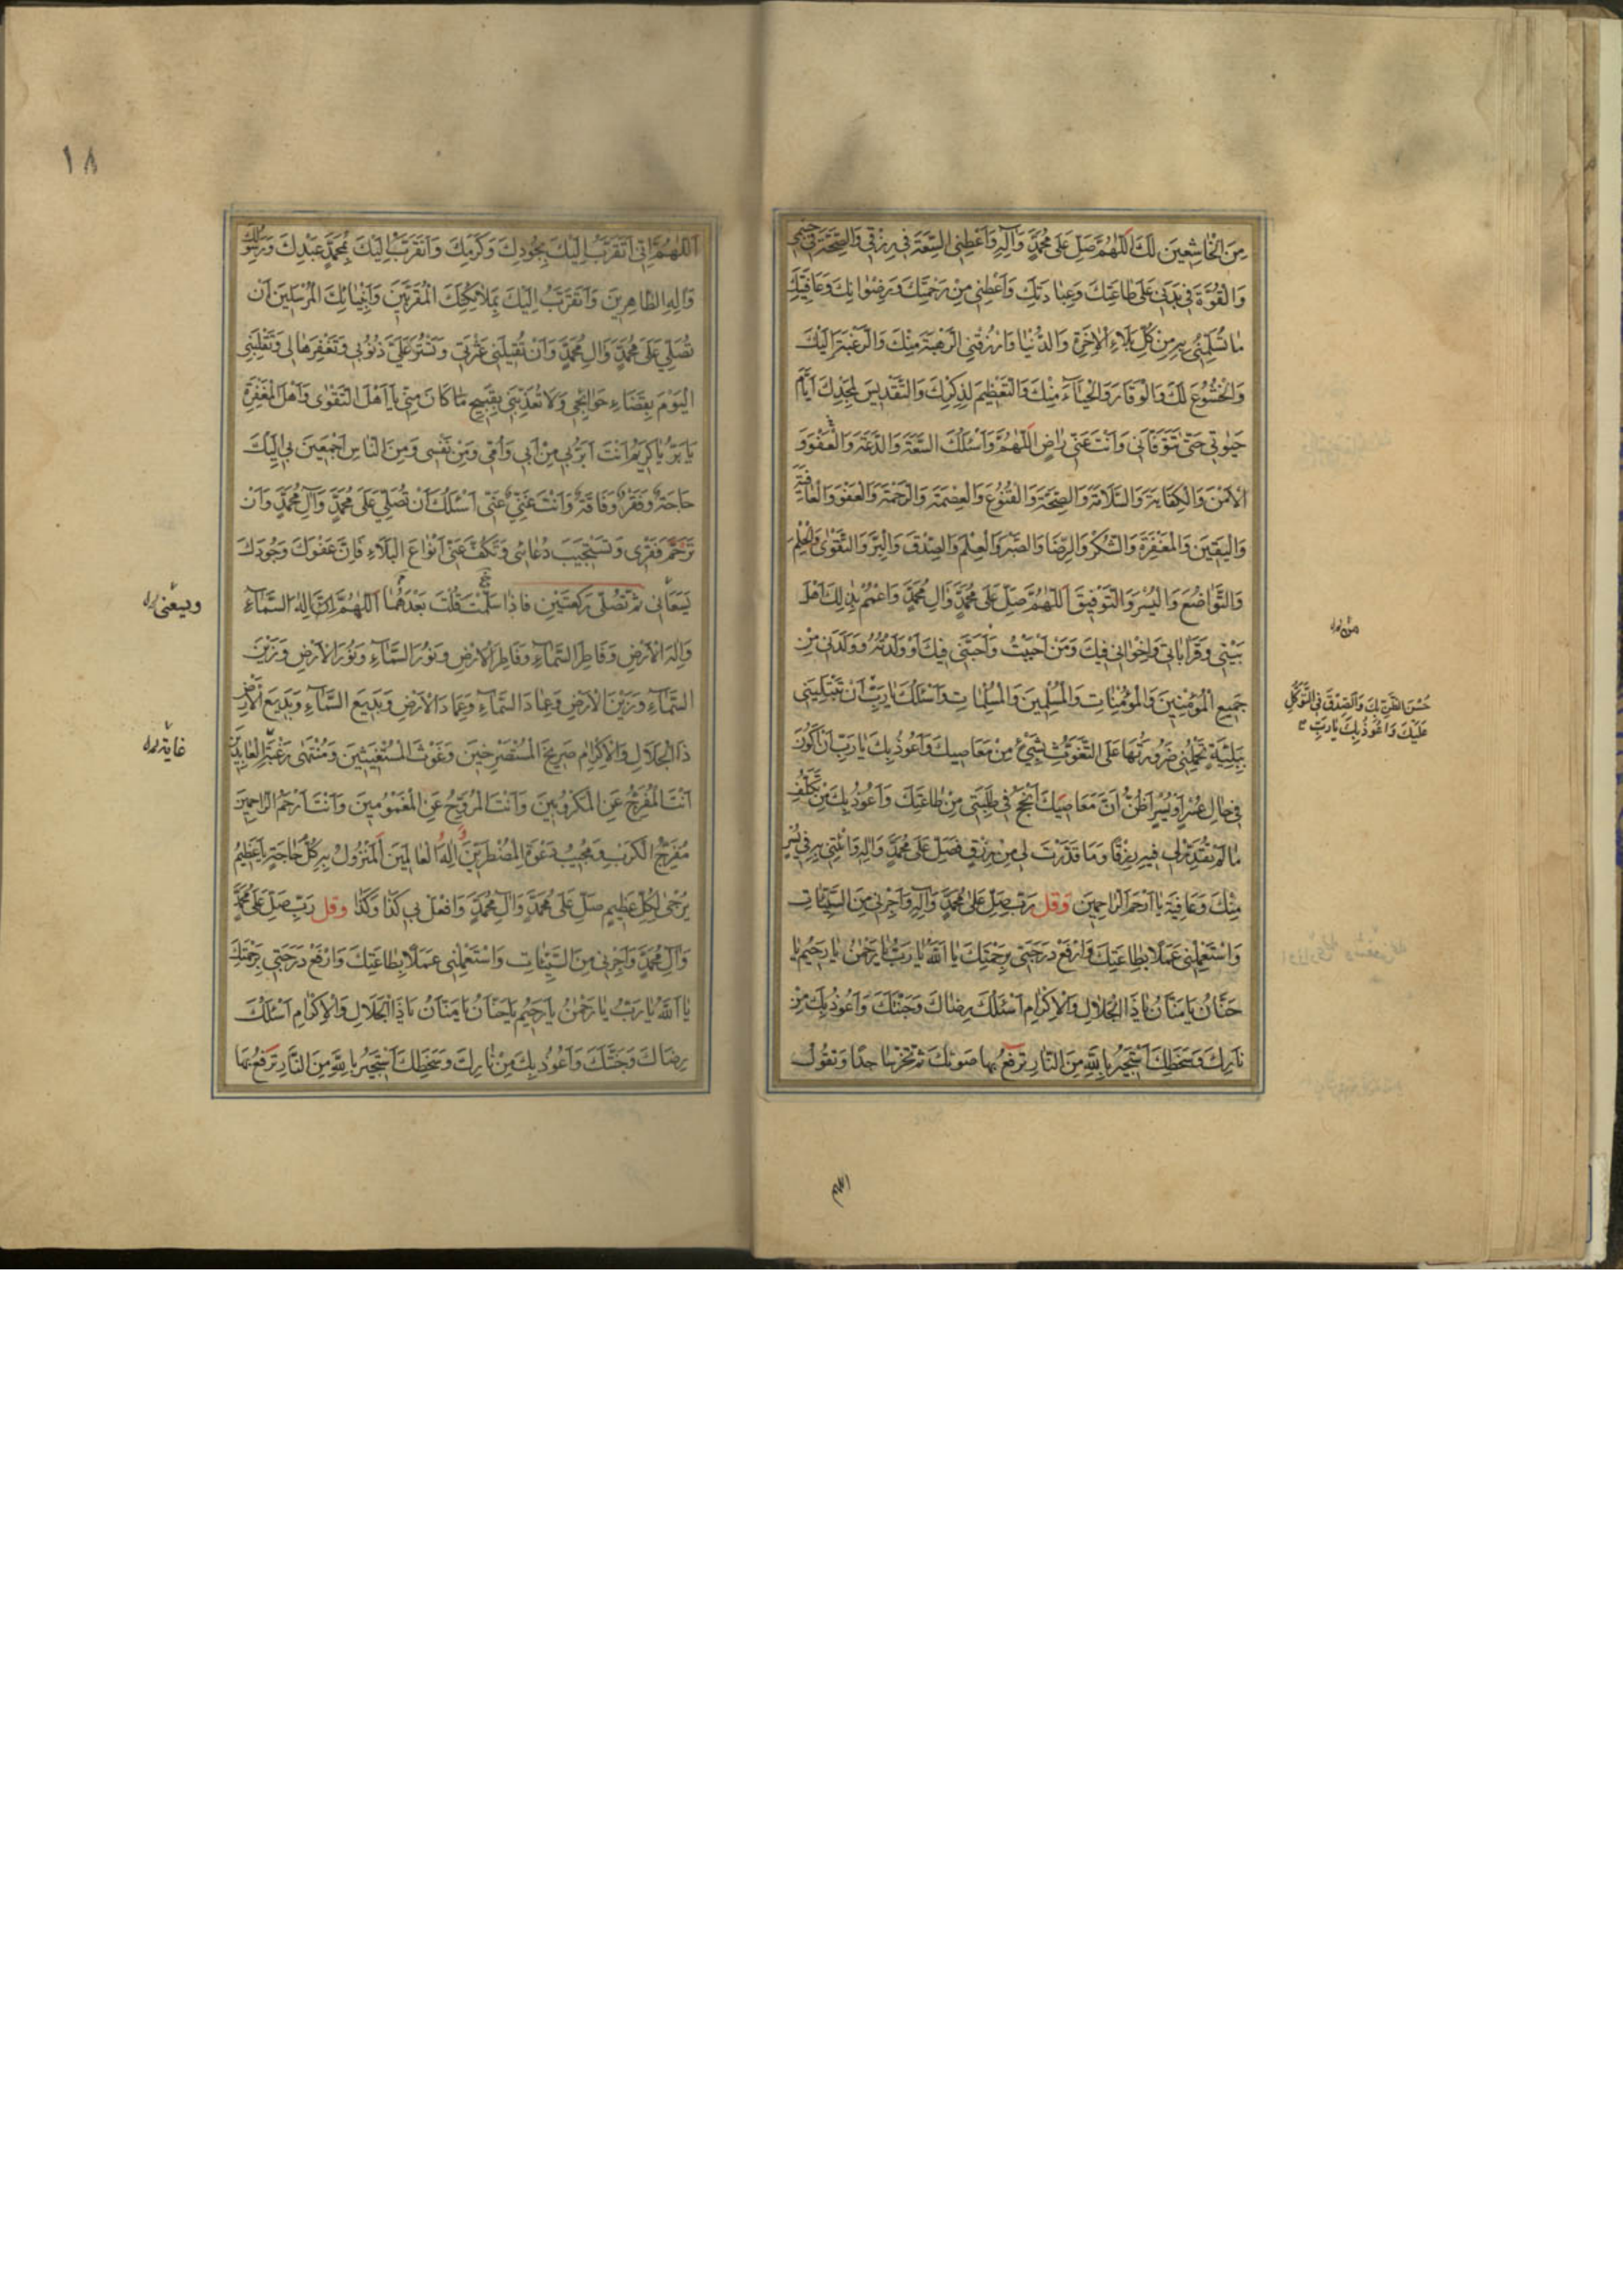 مِنَ الْخَاشِعِينَ لَكَ اَللّٰهُمَّ صَلِّ عَلىٰ مُحَمَّدٍ وَآلِهِ وَاَعْطِنِى السَّعَةَ فى رِزْقى وَالصِّحَّةَ فى جِسْمى
وَالْقُوَّةَ فى بَدَنى عَلىٰ طاعَتِكَ وَعِبادَتِكَ وَاَعْطِنى مِنْ رَحْمَتِكَ وَرِضْوانِكَ وَعافِيَتِكَ
ما تُسَلِّمُنى بِهِ مِنْ كُلِّ بَلاءِ الْاٰخِرَةِ وَالدُّنْيا وَارْزُقْنِى الرَّهْبَةَ مِنْكَ وَالرَّغْبَةَ اِلَيْكَ
وَالْخُشُوعَ لَكَ وَالْوَقارَ وَالْحَيٰاءَ مِنْكَ وَالتَّعْظيمَ لِذِكْرِكَ وَالتَّقْديسَ لِمَجْدِكَ اَيّامَ
حَيٰوتى حَتّىٰ تَتَوَفّانى وَاَنْتَ عَنّى راضٍ اَللّٰهُمَّ وَاَسْئَلُكَ السَّعَةَ وَالدَّعَةَ وَالْعَفْوَ وَ
الْاَمْنَ وَالْكِفايَةَ وَالسَّلامَةَ وَالصِّحَّةَ وَالْقُنُوعَ وَالْعِصْمَةَ وَالرَّحْمَةَ وَالْعَفْوَ وَالْعافِيَةَ
وَالْيَقينَ وَالْمَغْفِرَةَ وَالشُّكْرَ وَالرِّضا وَالصَّبْرَ وَالْعِلْمَ وَالصِّدْقَ وَالْبِرَّ وَالتَّقْوىٰ وَالْحِلْمَ
وَالتَّواضُعَ وَالْيُسْرَ وَالتَّوْفيقَ اَللّٰهُمَّ صَلِّ عَلىٰ مُحَمَّدٍ وَآلِ مُحَمَّدٍ وَاعْمُمْ بِذٰلِكَ اَهْلَ
بَيْتى وَقَراباتى وَاِخْوانى فيكَ وَمَنْ اَحْبَبْتُ وَاَحَبَّنى فيكَ اَوْ وَلَدْتُهُ وَوَلَدَنى مِنْ
جَميعِ الْمُؤْمِنينَ وَالْمُؤْمِناتِ وَالْمُسْلِمينَ وَالْمُسْلِماتِ وَاَسْئَلُكَ يا رَبِّ اَنْ تَبْتَلِيَنى
بِبَلِيَّةٍ تَحْمِلُنى ضَرُورَتُها عَلَى التَّغَوُّثِ بِشَىْءٍ مِنْ مَعاصيكَ وَاَعُوذُ بِكَ يا رَبِّ اَنْ اَكُونَ
فى حالِ عُسْرٍ اَوْ يُسْرٍ اَظُنُّ اَنَّ مَعاصِيَكَ اَنْجَحُ فى طَلِبَتى مِنْ طاعَتِكَ وَاَعُوذُ بِكَ مِنْ تَكَلُّفِ
ما لَمْ تُقَدِّرْ لى فيهِ رِزْقًا وَما قَدَّرْتَ لى مِنْ رِزْقٍ فَصَلِّ عَلىٰ مُحَمَّدٍ وَآلِهِ وَآتِنى بِهِ فى يُسْرٍ
مِنْكَ وَعافِيَةٍ يا اَرْحَمَ الرّاحِمينَ وَقُلْ رَبِّ صَلِّ عَلىٰ مُحَمَّدٍ وَآلِهِ وَاَجِرْنى مِنَ السَّيِّئاتِ
وَاسْتَعْمِلْنى عَمَلًا بِطاعَتِكَ وَارْفَعْ دَرَجَتى بِرَحْمَتِكَ يا اَللّٰهُ يا رَبُّ يا رَحْمٰنُ يا رَحيمُ يا
حَنّانُ يا مَنّانُ يا ذَا الْجَلالِ وَالْاِكْرامِ اَسْئَلُكَ رِضاكَ وَجَنَّتَكَ وَاَعُوذُ بِكَ مِنْ
نارِكَ وَسَخَطِكَ اَسْتَجيرُ بِاللّٰهِ مِنَ النّارِ تَرْفَعُ بِها صَوْتَكَ ثُمَّ تَخِرُّ ساجِدًا وَتَقُولُ
حُسْنَ الظَّنِّ بِكَ وَالصِّدْقَ فِى التَّوَكُّلِ
عَلَيْكَ وَاَعُوذُ بِكَ يا رَبِّ
اللهم
١٨
اَللّٰهُمَّ اِنّى اَتَقَرَّبُ اِلَيْكَ بِجُودِكَ وَكَرَمِكَ وَاَتَقَرَّبُ اِلَيْكَ بِمُحَمَّدٍ عَبْدِكَ وَرَسُولِكَ
وَآلِهِ الطّاهِرينَ وَاَتَقَرَّبُ اِلَيْكَ بِمَلائِكَتِكَ الْمُقَرَّبينَ وَاَنْبِيائِكَ الْمُرْسَلينَ اَنْ
تُصَلِّىَ عَلىٰ مُحَمَّدٍ وَآلِ مُحَمَّدٍ وَاَنْ تُقيلَنى عَثْرَتى وَتَسْتُرَ عَلَىَّ ذُنُوبى وَتَغْفِرَها لى وَتَقْلِبَنِى
الْيَوْمَ بِقَضاءِ حَوائِجى وَلا تُعَذِّبَنى بِقَبيحِ ما كانَ مِنّى يا اَهْلَ التَّقْوىٰ وَاَهْلَ الْمَغْفِرَةِ
يا بَرُّ يا كَريمُ اَنْتَ اَبَرُّ بى مِنْ اَبى وَاُمّى وَمِنْ نَفْسى وَمِنَ النّاسِ اَجْمَعينَ بى اِلَيْكَ
حاجَةٌ وَفَقْرٌ وَفاقَةٌ وَاَنْتَ غَنِىٌّ عَنّى اَسْئَلُكَ اَنْ تُصَلِّىَ عَلىٰ مُحَمَّدٍ وَآلِ مُحَمَّدٍ وَاَنْ
تَرْحَمَ فَقْرى وَتَسْتَجيبَ دُعائى وَتَكُفَّ عَنّى اَنْواعَ الْبَلاءِ فَاِنَّ عَفْوَكَ وَجُودَكَ
يَسَعانى ثُمَّ تُصَلّى رَكْعَتَيْنِ فَاِذا سَلَّمْتَ قُلْتَ بَعْدَهُما اَللّٰهُمَّ اِلٰهَ السَّمآءِ
وَاِلٰهَ الْاَرْضِ وَفاطِرَ السَّمآءِ وَفاطِرَ الْاَرْضِ وَنُورَ السَّمآءِ وَنُورَ الْاَرْضِ وَزَيْنَ
السَّمآءِ وَزَيْنَ الْاَرْضِ وَعِمادَ السَّمآءِ وَعِمادَ الْاَرْضِ وَبَديعَ السَّمآءِ وَبَديعَ الْاَرْضِ
ذَا الْجَلالِ وَالْاِكْرامِ صَريخَ الْمُسْتَصْرِخينَ وَغَوْثَ الْمُسْتَغيثينَ وَمُنْتَهىٰ رَغْبَةِ الْعابِدينَ
اَنْتَ الْمُفَرِّجُ عَنِ الْمَكْرُوبينَ وَاَنْتَ الْمُرَوِّحُ عَنِ الْمَغْمُومينَ وَاَنْتَ اَرْحَمُ الرّاحِمينَ
مُفَرِّجُ الْكَرْبِ وَمُجيبُ دَعْوَةِ الْمُضْطَرّينَ اِلٰهُ الْعالَمينَ الْمَنْزُولُ بِهِ كُلُّ حاجَةٍ يا عَظيمُ
يُرْجىٰ لِكُلِّ عَظيمٍ صَلِّ عَلىٰ مُحَمَّدٍ وَآلِ مُحَمَّدٍ وَافْعَلْ بى كَذا وَكَذا وقل رَبِّ صَلِّ عَلىٰ مُحَمَّدٍ
وَآلِ مُحَمَّدٍ وَاَجِرْنى مِنَ السَّيِّئاتِ وَاسْتَعْمِلْنى عَمَلًا بِطاعَتِكَ وَارْفَعْ دَرَجَتى بِرَحْمَتِكَ
يا اَللّٰهُ يا رَبُّ يا رَحْمٰنُ يا رَحيمُ يا حَنّانُ يا مَنّانُ يا ذَا الْجَلالِ وَالْاِكْرامِ اَسْئَلُكَ
رِضاكَ وَجَنَّتَكَ وَاَعُوذُ بِكَ مِنْ نارِكَ وَسَخَطِكَ اَسْتَجيرُ بِاللّٰهِ مِنَ النّارِ تَرْفَعُ بِها
ويسعنى
غاية